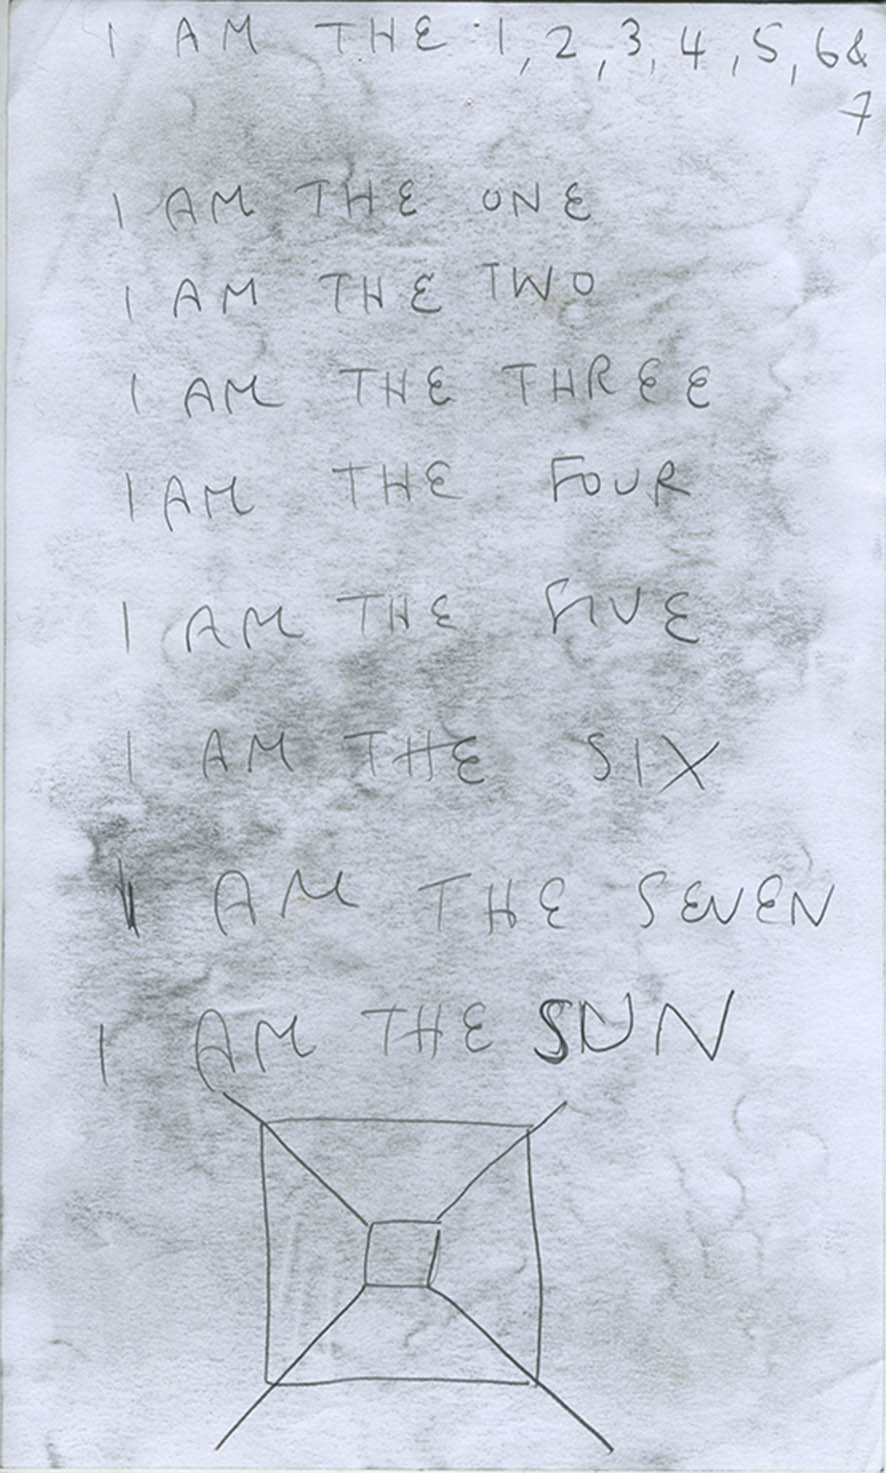 I AM THE 1, 2, 3, 4, 5, 6 &
7
I AM THE ONE
I AM THE TWO
I AM THE THREE
I AM THE FOUR
I AM THE FIVE
I AM THE SIX
I AM THE SEVEN
I AM THE SUN